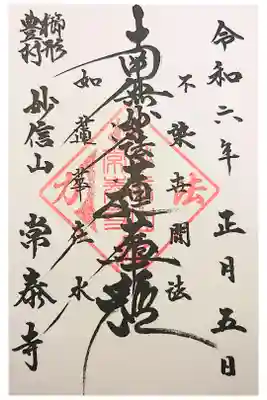 令和六年 正月五日
不染世間法
南無妙法蓮華経
如蓮華在水
櫛形
豊村
妙信山 常泰寺